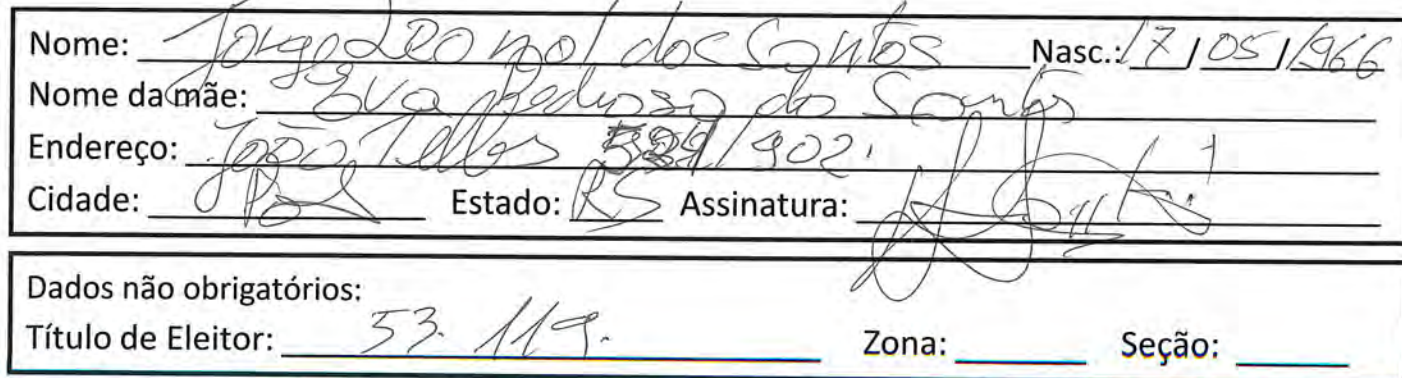 Nome: Jorge Leonol dos Santos Nasc.: 17/05/1966
Nome da mãe: Eva Pedroso do Santos
Endereço: João Telles 902
Cidade: POA Estado: RS Assinatura:
Dados não obrigatórios:
Título de Eleitor: 53.119. Zona: Seção: